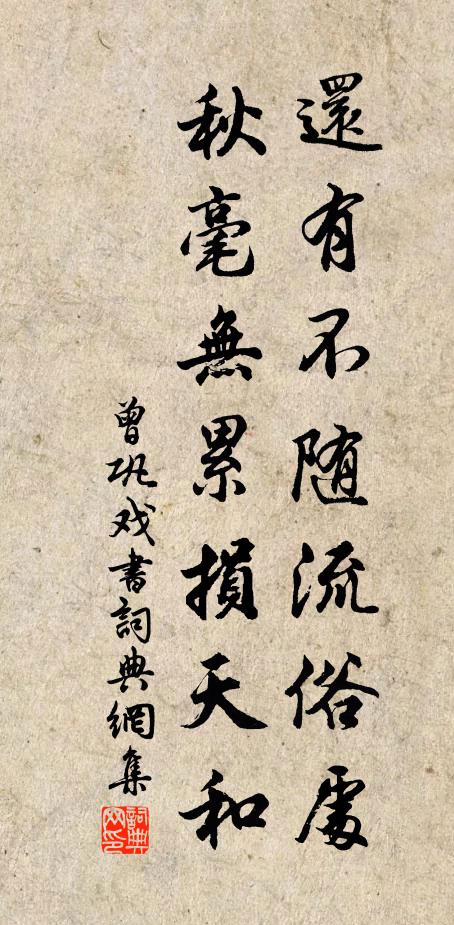 還有不随流俗處
秋毫無累損天和
曾巩戏書詞典網集
詞典网印